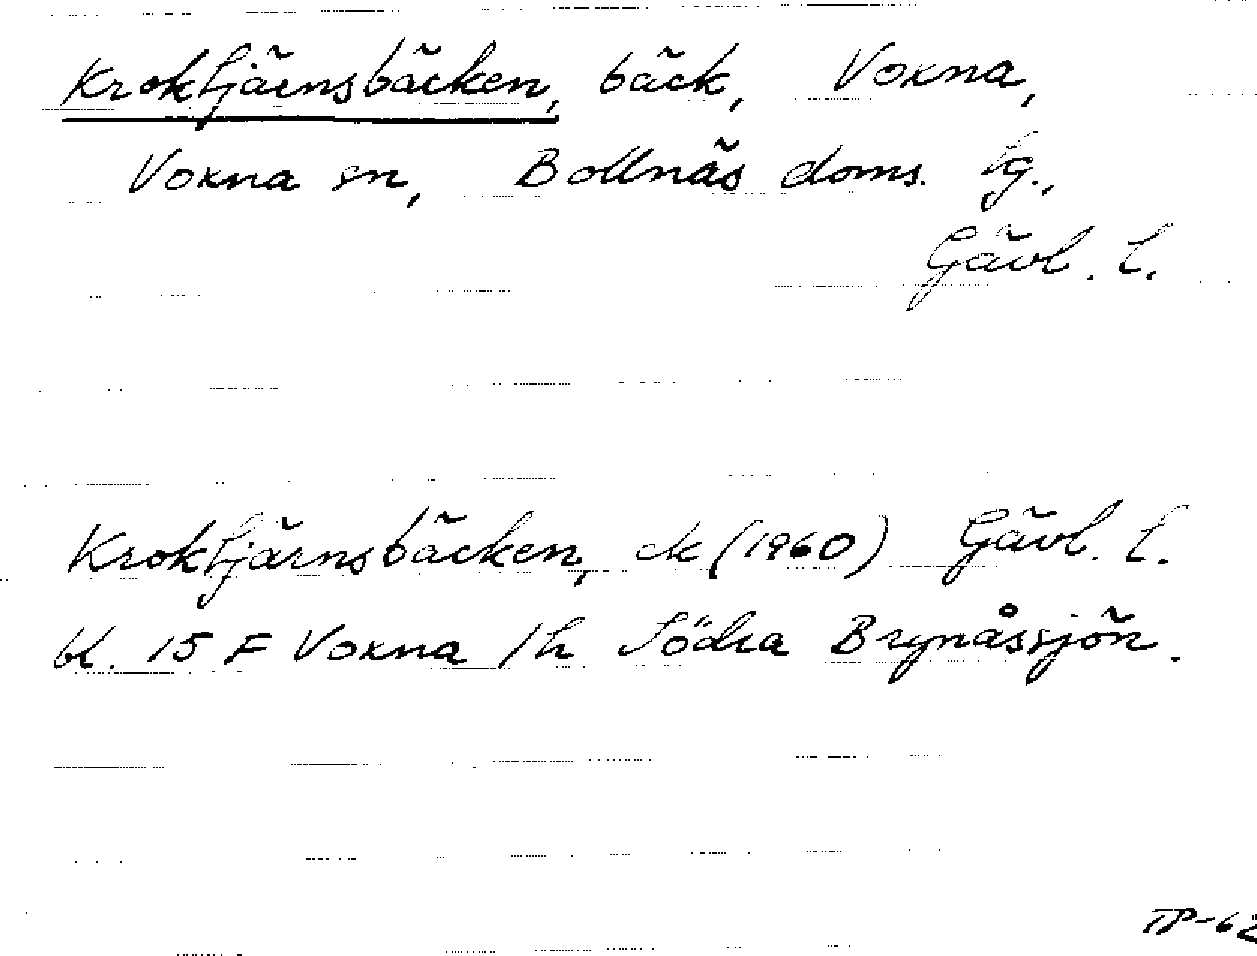 Kroktjärnsbäcken, bäck, Voxna,
Voxna sn, Bollnäs doms. tg.,
Gävl. l.
Kroktjärnsbäcken, ek (1960) Gävl. l.
bl. 15 F Voxna /h Södra Brynåssjön.
TP-62